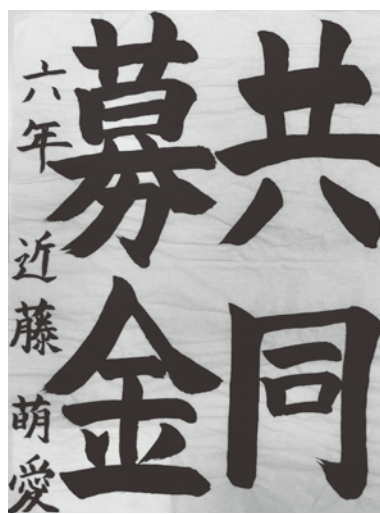 共同
募金
六年 近藤 萌愛